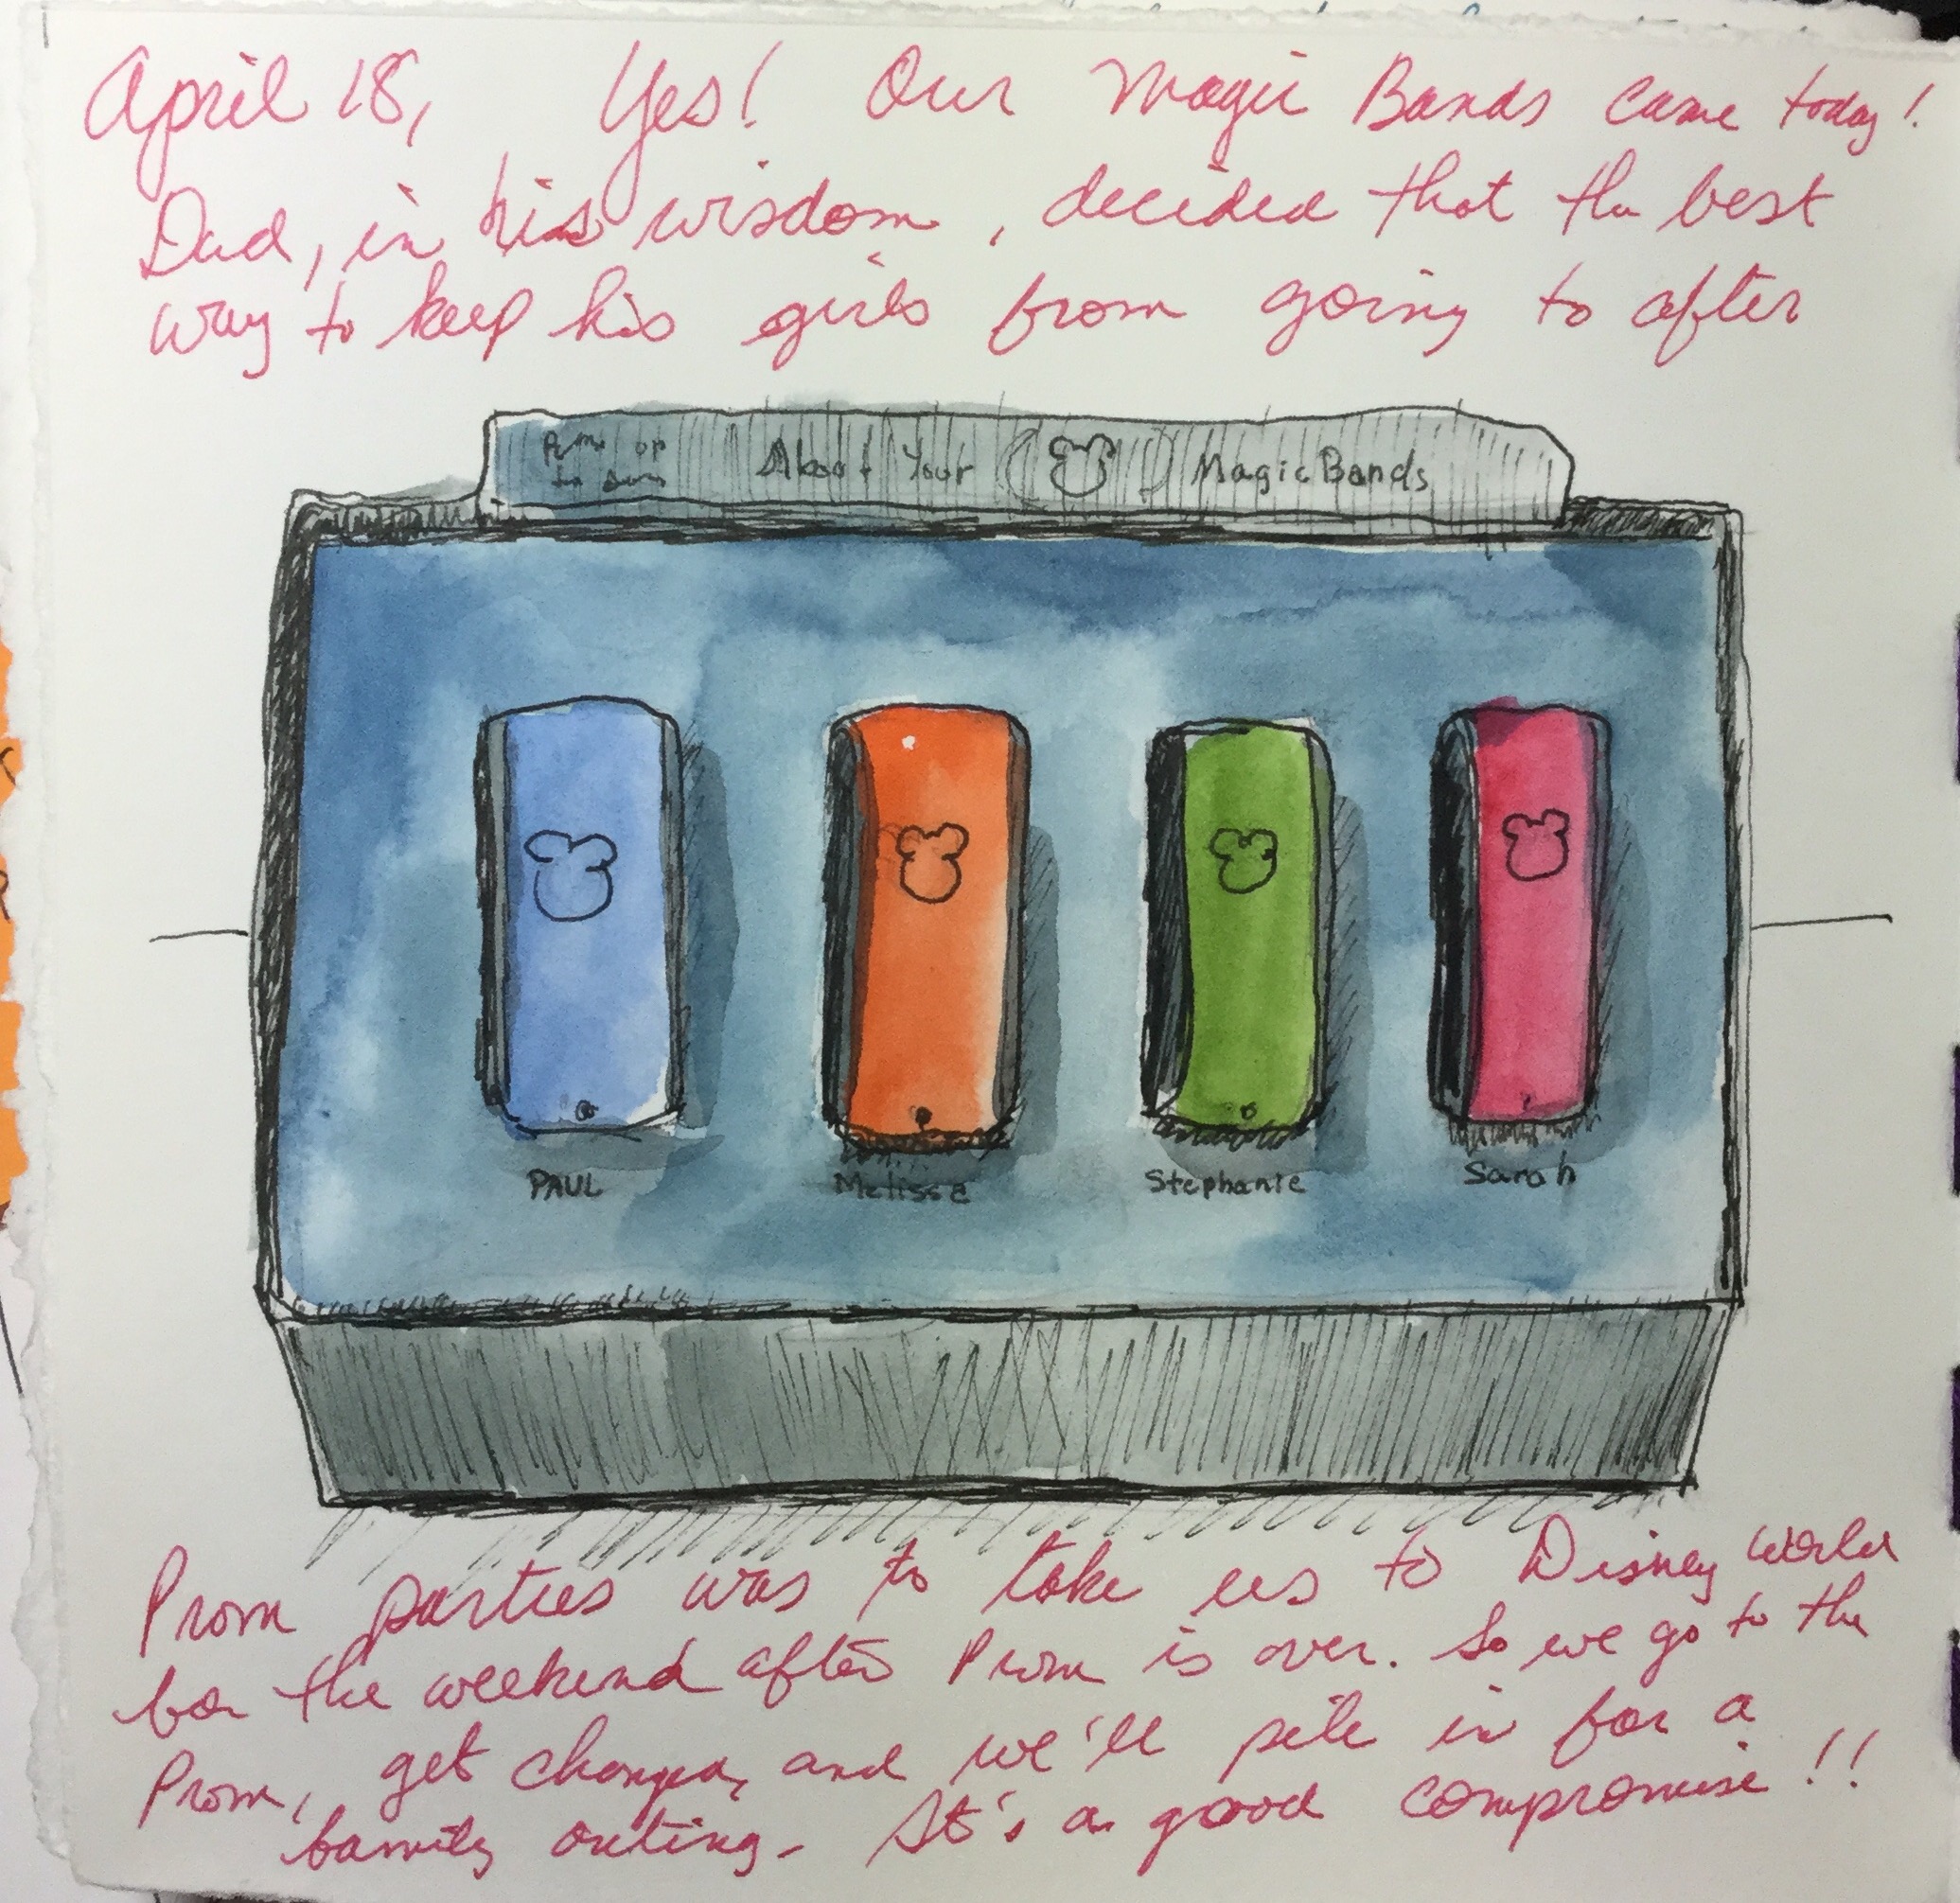 April 18, Yes! Our Magic Bands came today!
Dad, in his wisdom, decided that the best
way to keep his girls from going to after
About Your MagicBands
PAUL Melissa Stephanie Sarah
Prom parties was to take us to Disney World
for the weekend after Prom is over. So we go to the
Prom, get changed, and we'll pile in for a
family outing. It's a good compromise!!